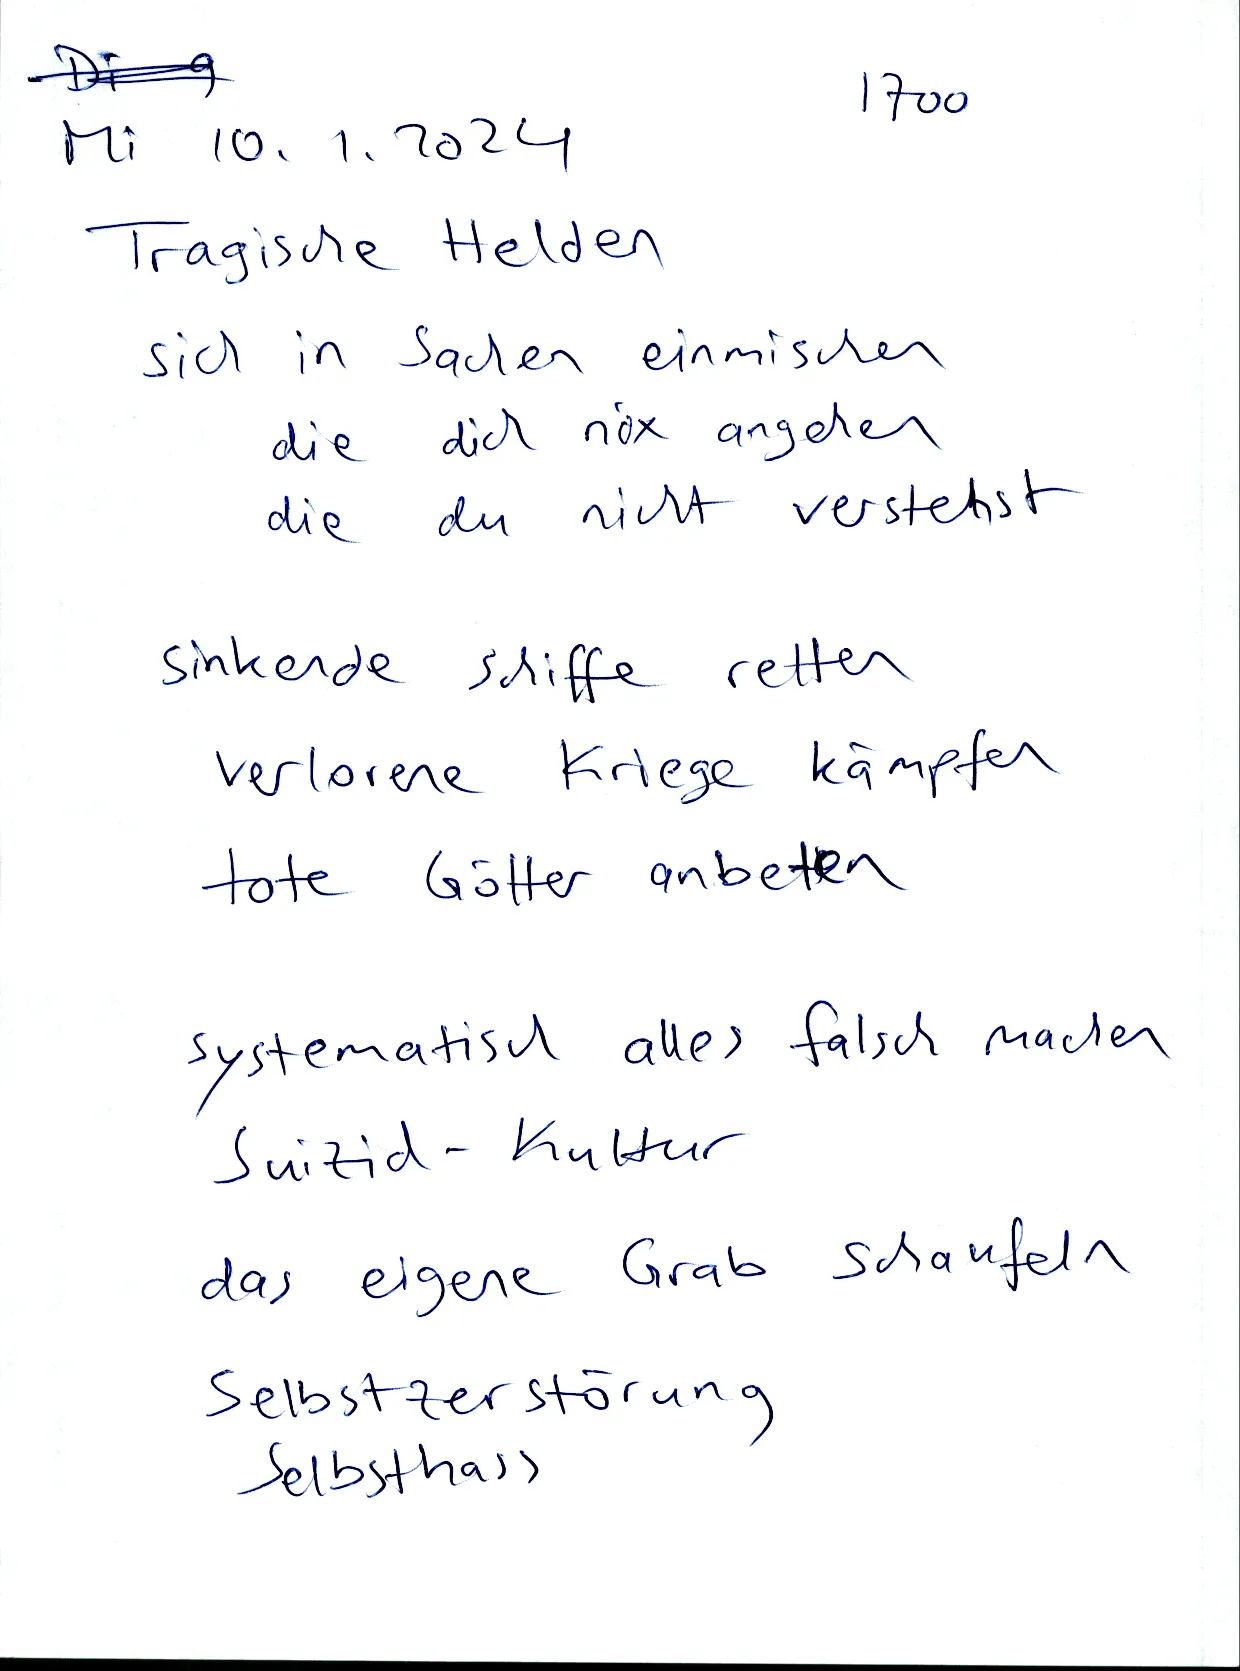 Di 9
1700
Mi 10. 1. 2024
Tragische Helden
sich in Sachen einmischen
die dich nöx angehen
die du nicht verstehst
sinkende schiffe retten
verlorene Kriege kämpfen
tote Götter anbeten
systematisch alles falsch machen
Suizid-Kultur
das eigene Grab schaufeln
Selbstzerstörung
Selbsthass